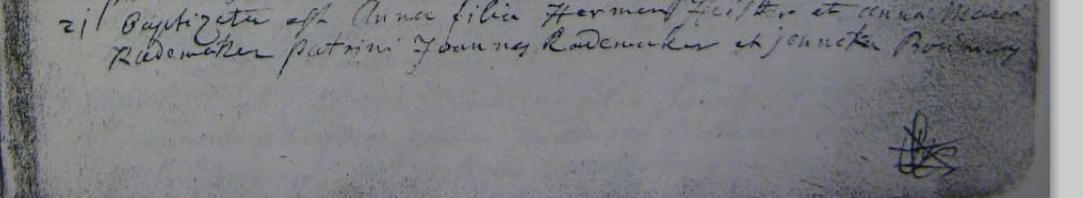 21 Baptizata est Anna filia Hermens et Anna Maria
Rademaker patrini Joannes Rademaker et jenneken